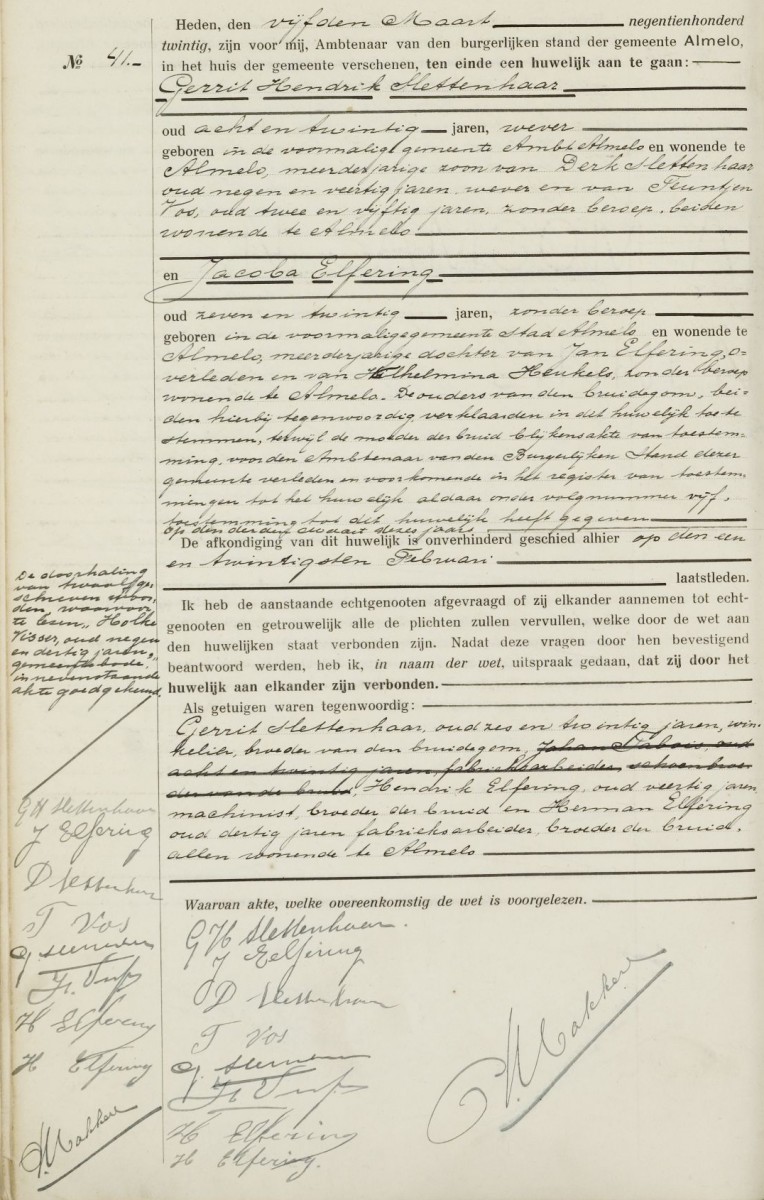 Heden, den vijfden Maart negentienhonderd
twintig, zijn voor mij, Ambtenaar van den burgerlijken stand der gemeente Almelo,
No 41.-
in het huis der gemeente verschenen, ten einde een huwelijk aan te gaan:
Gerrit Hendrik Slettenhaar
oud acht en twintig jaren, wever
geboren in de voormalige gemeente Ambt Almelo en wonende te
Almelo, meerderjarige zoon van Derk Slettenhaar
oud negen en veertig jaren, wever en van Teuntjen
Vos, oud twee en vijftig jaren, zonder beroep, beiden
wonende te Almelo
en Jacoba Elfering
oud zeven en twintig jaren, zonder beroep
geboren in de voormalige gemeente Stad Almelo en wonende te
Almelo, meerderjarige dochter van Jan Elfering, o-
verleden en van Wilhelmina Heukels, zonder beroep
wonende te Almelo. De ouders van den bruidegom, bei-
den hierbij tegenwoordig verklaarden in dit huwelijk toe te
stemmen, terwijl de moeder der bruid blijkens akte van toestem-
ming, voor den Ambtenaar van den Burgerlijken Stand dezer
gemeente verleden en voorkomende in het register van toestem-
mingen tot het huwelijk aldaar onder volgnummer vijf,
toestemming tot dit huwelijk heeft gegeven
op den derden Maart dezes jaars
De afkondiging van dit huwelijk is onverhinderd geschied alhier op den een
en twintigsten Februari
laatstleden.
Ik heb de aanstaande echtgenooten afgevraagd of zij elkander aannemen tot echt-
genooten en getrouwelijk alle de plichten zullen vervullen, welke door de wet aan
den huwelijken staat verbonden zijn. Nadat deze vragen door hen bevestigend
beantwoord werden, heb ik, in naam der wet, uitspraak gedaan, dat zij door het
huwelijk aan elkander zijn verbonden.
Als getuigen waren tegenwoordig:
Gerrit Slettenhaar, oud zes en twintig jaren, win-
kelier, broeder van den bruidegom, Johan Tabois, oud
acht en twintig jaren, fabrieksarbeider, schoonbroe-
der van de bruid, Hendrik Elfering, oud veertig jaren
machinist, broeder der bruid en Herman Elfering
oud dertig jaren fabrieksarbeider, broeder der bruid,
allen wonende te Almelo
Waarvan akte, welke overeenkomstig de wet is voorgelezen.
De doorhaling
van twaalf ge-
schreven woor-
den waarvoor
te lezen "Holke
Visser, oud negen
en dertig jaren,
gemeentebode"
in nevenstaande
akte goedgekeurd.
G H Slettenhaar
J Elfering
D Slettenhaar
T Vos
H Elfering
H Elfering
G H Slettenhaar.
J Elfering
D Slettenhaar
T Vos
H Elfering
H Elfering.